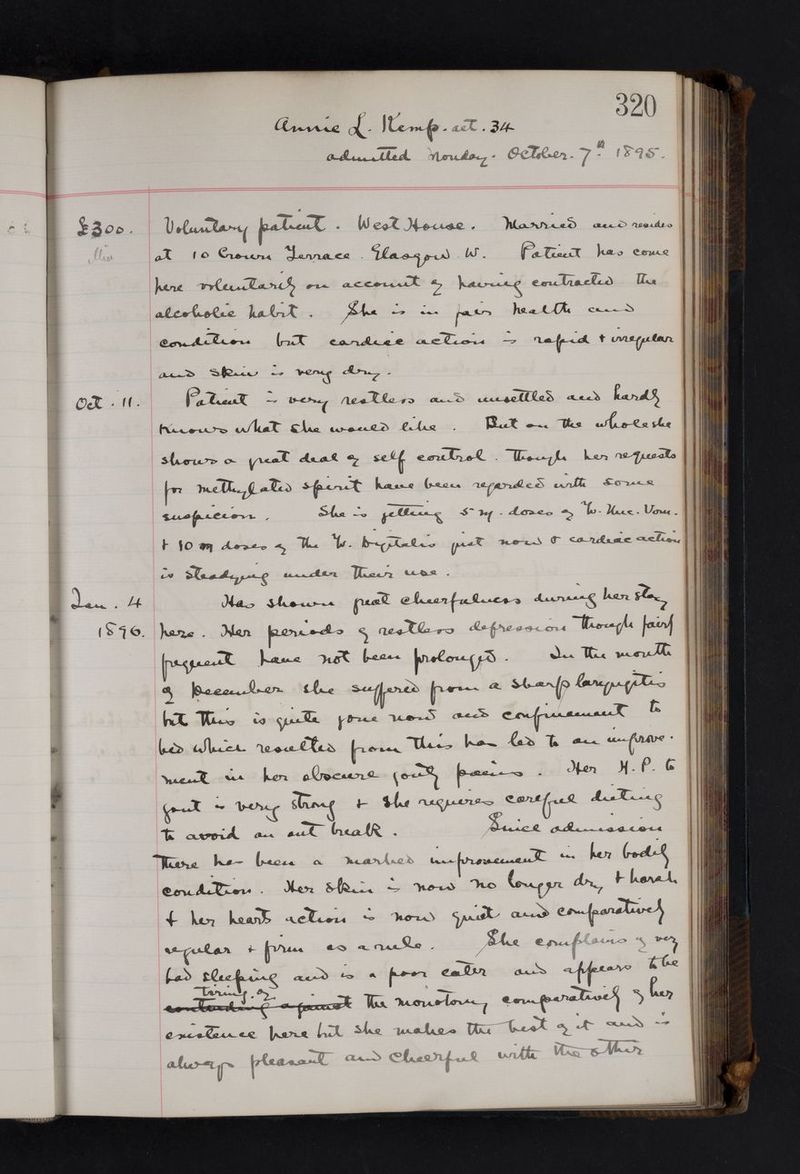 320
Annie L. Kemp. aet. 34
admitted Monday. October. 7th 1895.
£300. Voluntary patient. West House. Married and resides
at 10 Crown Terrace. Glasgow W. Patient has come
here voluntarily on account of having contracted the
alcoholic habit. She is in fair health and
condition but cardiac action is rapid & irregular
and skin is very dry.
Oct. 11. Patient is very restless and unsettled and hardly
knows what she would like. But on the whole she
shows a great deal of self control. Though her requests
for methylated spirit have been regarded with some
suspicion. She is getting 5 m. doses of Tr. Nuc. Vom.
& 10 m doses of the Tr. Digitalis just now & cardiac action
is steadying under their use.
Jan. 4 Has shown great cheerfulness during her stay
1896. here. Her periods of restless depression though fairly
frequent have not been prolonged. In the month
of December she suffered from a sharp laryngitis
but this is quite gone now and confinement to
bed which resulted from this has led to an improve-
ment in her obscure gouty pains. Her H.P. to
gout is very strong & she requires careful dieting
to avoid an out break. Since admission
there has been a marked improvement in her bodily
condition. Her skin is now no longer dry & harsh
& her heart's action is now quiet and comparatively
regular & firm as a rule. She complains of very
bad sleeping and is a poor eater and appears to be
tiring of
contending against the monotony comparatively of her
existence here but she makes the best of it and is
always pleasant and cheerful with the other